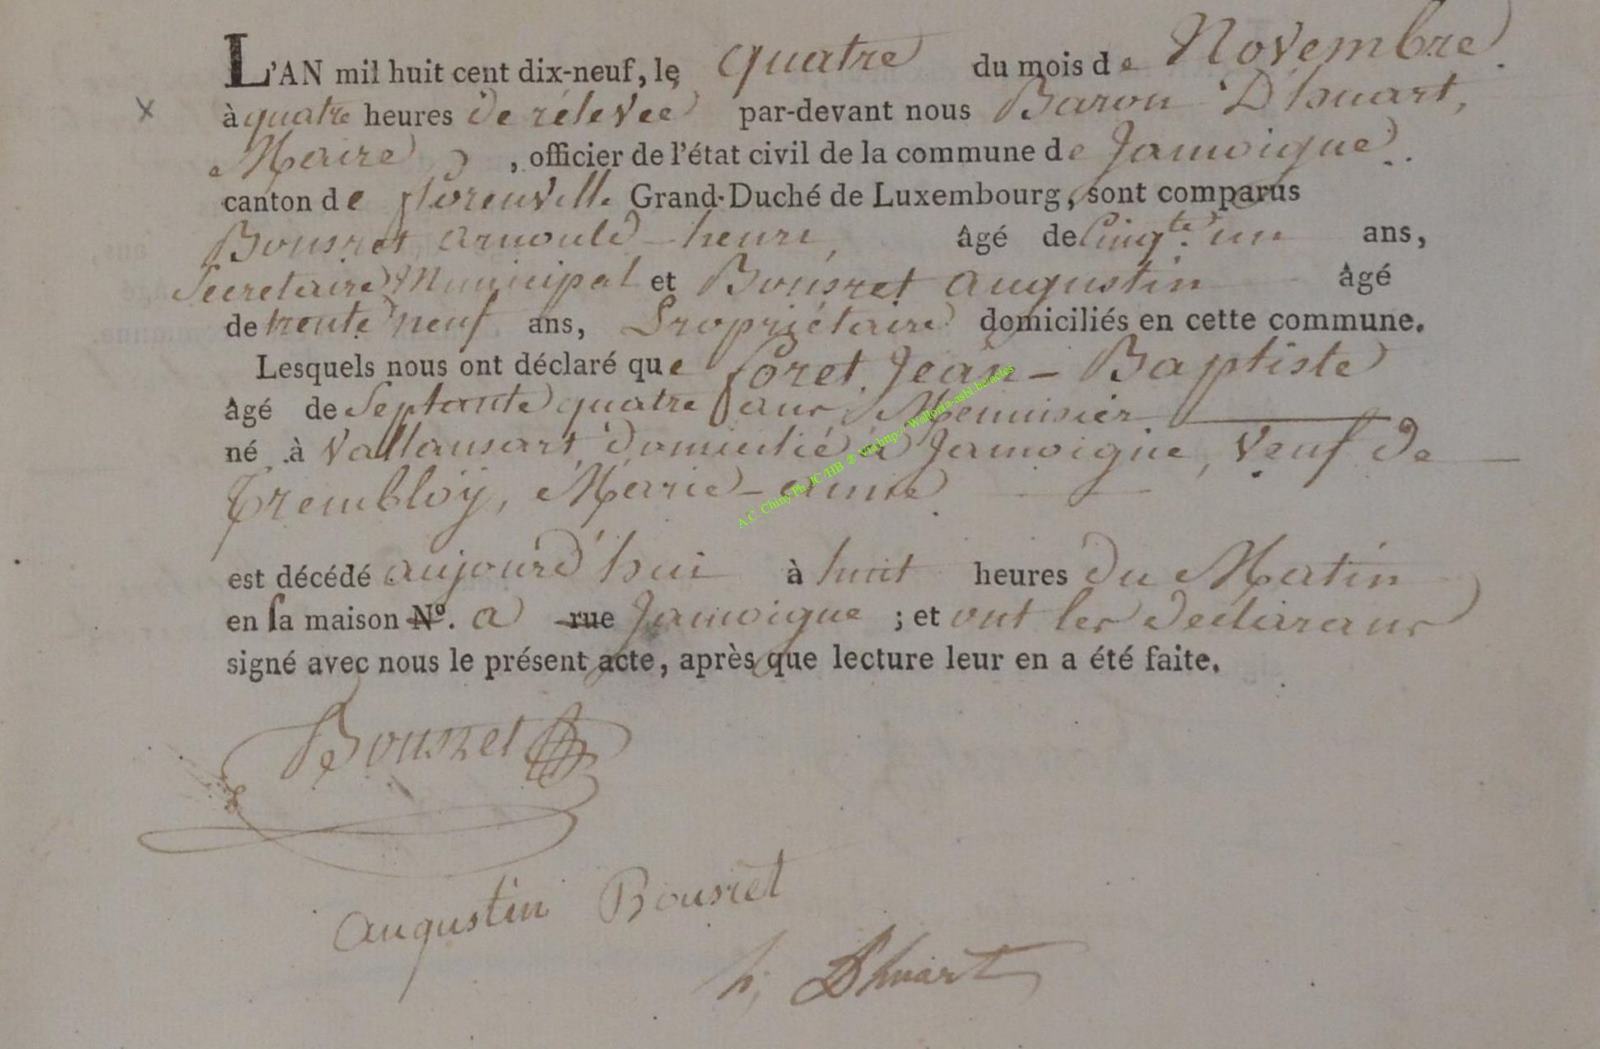 L'AN mil huit cent dix-neuf, le quatre du mois de Novembre.
à quatre heures de rélevée par-devant nous Baron D'huart,
Maire, officier de l'état civil de la commune de Jamoigne.
canton de florenville Grand-Duché de Luxembourg, sont comparus
Bousret arnould-henri, âgé de Cinqte. un ans,
Secretaire Municipal et Bousret augustin âgé
de trente neuf ans, Propriétaire domiciliés en cette commune.
Lesquels nous ont déclaré que foret, Jean-Baptiste
âgé de Septante quatre ans, Menuisier
né à Vallansart, domicilié à Jamoigne, Veuf de
Trembloÿ, Marie-anne
A.C. Chiny Ph. JC/HB
est décédé aujourd'hui à huit heures du Matin
en sa maison No. a rue Jamoigne ; et ont les déclarans
signé avec nous le présent acte, après que lecture leur en a été faite.
Bousret
augustin Bousret
h, Dhuart